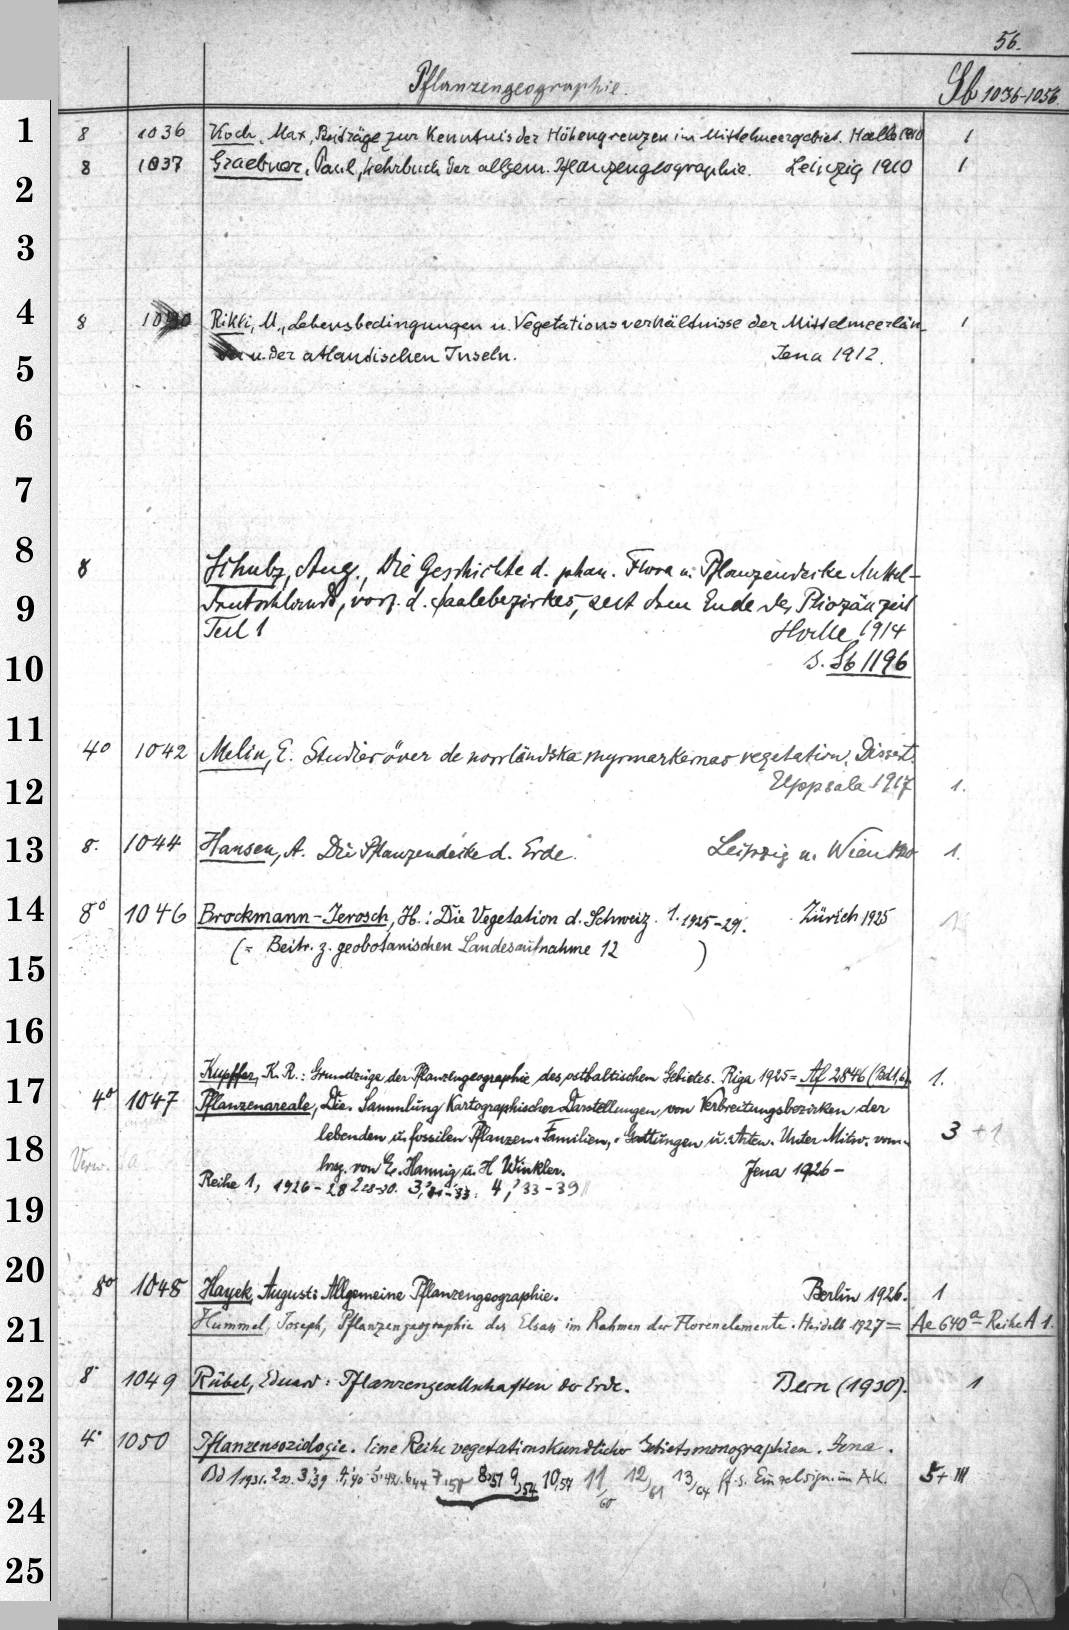 56.
Pflanzengeographie. Sb 1036-1056
1 8 1036 Koch, Max, Beiträge zur Kenntnis der Höhengrenzen im Mittelmeergebiet. Halle 1910 1
8 1037 Graebner, Paul, Lehrbuch der allgem. Pflanzengeographie. Leipzig 1910 1
2
3
4 8 Rikli, M., Lebensbedingungen u. Vegetationsverhältnisse der Mittelmeerlän- 1
u. der atlantischen Inseln. Jena 1912.
5
6
7
8 8 Schulz, Aug., Die Geschichte d. phan. Flora u. Pflanzendecke Mittel-
9 Deutschlands, vorz. d. Saalebezirkes, seit dem Ende der Pliozänzeit
Teil 1 Halle 1914
10 s. Sb 1196
11 4° 1042 Melin, E. Studier över de norrländska myrmarkernas vegetation. Dissert.
12 Uppsala 1917 1.
13 8. 1044 Hansen, A. Die Pflanzendecke d. Erde. Leipzig u. Wien 1920 1.
14 8° 1046 Brockmann-Jerosch, H.: Die Vegetation d. Schweiz. 1. 1925-29. Zürich 1925 1
(= Beitr. z. geobotanischen Landesaufnahme 12 )
15
16
Kupffer, K. R.: Grundzüge der Pflanzengeographie des ostbaltischen Gebietes. Riga 1925 = Af 2846 (Bd 1,6) 1.
17 4° 1047 Pflanzenareale, Die. Sammlung Kartographischer Darstellungen von Verbreitungsbezirken der
18 lebenden u. fossilen Pflanzen-Familien, -Gattungen u. -Arten. Unter Mitw. von 3 + 1
Verw. a hrsg. von E. Hannig u. H. Winkler. Jena 1926-
19 Reihe 1, 1926-28 2 28-30. 3, 31-33. 4, 33-39
20 8° 1048 Hayek, August: Allgemeine Pflanzengeographie. Berlin 1926. 1
21 Hummel, Joseph, Pflanzengeographie des Elsass im Rahmen der Florenelemente. Heidelb 1927 = Ae 640a - Reihe A 1.
22 8° 1049 Rübel, Eduard: Pflanzengesellschaften der Erde. Bern (1930). 1
23 4° 1050 Pflanzensoziologie. Eine Reihe vegetationskundlicher Gebietsmonographien. Jena.
Bd 1, 1931. 3,'39 4,'40 5,'42. 6,44 7,50 8,51 9,54 10,57 11/60 12/61 13/64 ff. s. Einzelsign. im AK. 5+III
24
25